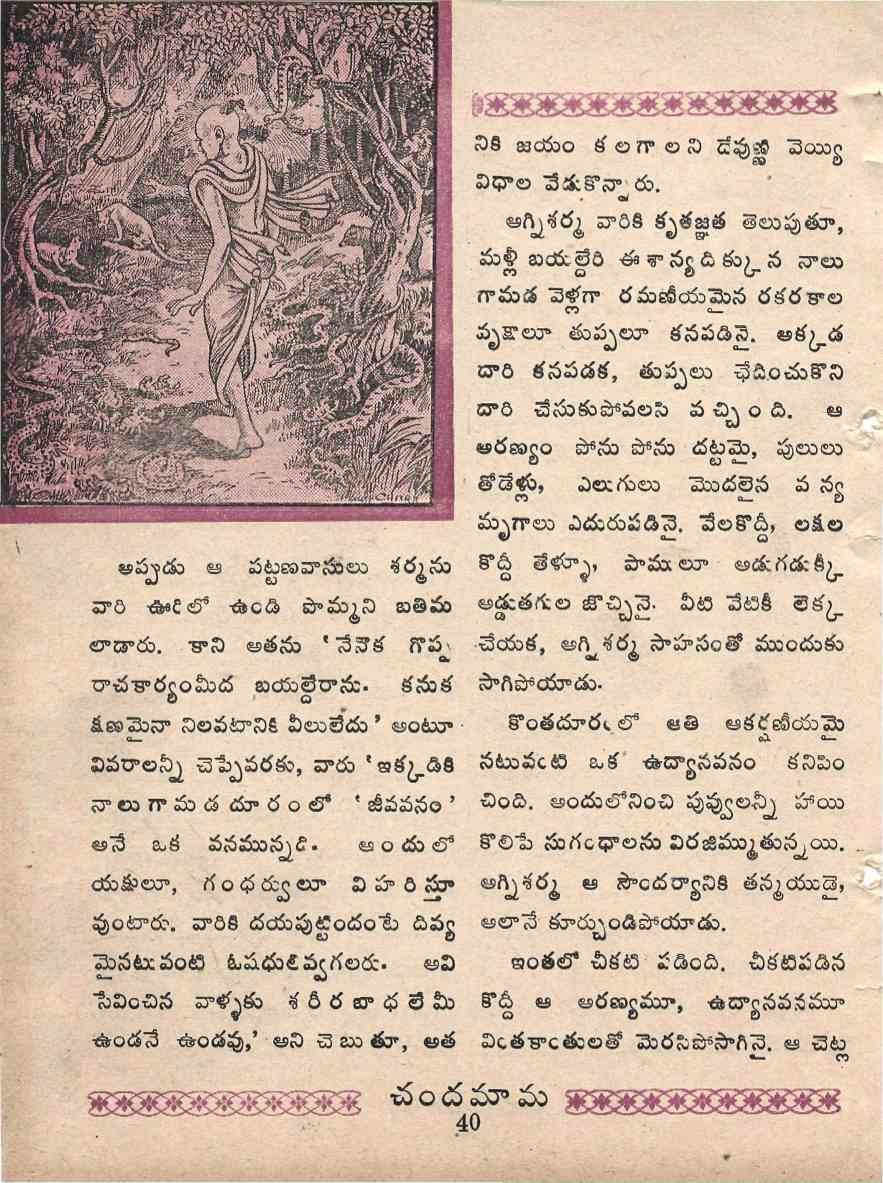 అప్పడు ఆ పట్టణవాసులు శర్మను
వారి ఊరిలో ఉండి పొమ్మని బతిమ
లాడారు. కాని అతను ‘నేనొక గొప్ప
రాచకార్యంమీద బయల్దేరాను. కనుక
క్షణమైనా నిలవటానికి వీలులేదు’ అంటూ
వివరాలన్నీ చెప్పేవరకు, వారు ‘ఇక్కడికి
నాలుగామడ దూరంలో ‘జీవవనం’
అనే ఒక వనమున్నది. అందులో
యక్షులూ, గంధర్వులూ విహరిస్తూ
వుంటారు. వారికి దయపుట్టిందంటే దివ్య
మైనటువంటి ఓషధులివ్వగలరు. అవి
సేవించిన వాళ్ళకు శరీరబాధలేమీ
ఉండనే ఉండవు,’ అని చెబుతూ, అత
నికి జయం కలగాలని దేవుణ్ణి వెయ్యి
విధాల వేడుకొన్నారు.
అగ్నిశర్మ వారికి కృతజ్ఞత తెలుపుతూ,
మళ్లీ బయల్దేరి ఈశాన్యదిక్కున నాలు
గామడ వెళ్లగా రమణీయమైన రకరకాల
వృక్షాలూ తుప్పలూ కనపడినై. అక్కడ
దారి కనపడక, తుప్పలు ఛేదించుకొని
దారి చేసుకుపోవలసి వచ్చింది. ఆ
అరణ్యం పోను పోను దట్టమై, పులులు
తోడేళ్లు, ఎలుగులు మొదలైన వన్య
మృగాలు ఎదురుపడినై. వేలకొద్దీ, లక్షల
కొద్దీ తేళ్ళూ, పాములూ అడుగడుక్కీ
అడ్డుతగుల జొచ్చినై. వీటి వేటికీ లెక్క
చేయక, అగ్నిశర్మ సాహసంతో ముందుకు
సాగిపోయాడు.
కొంతదూరంలో అతి ఆకర్షణీయమై
నటువంటి ఒక ఉద్యానవనం కనిపిం
చింది. అందులోనించి పువ్వులన్నీ హాయి
కొలిపే సుగంధాలను విరజిమ్ముతున్నయి.
అగ్నిశర్మ ఆ సౌందర్యానికి తన్మయుడై,
అలానే కూర్చుండిపోయాడు.
ఇంతలో చీకటి పడింది. చీకటిపడిన
కొద్దీ ఆ అరణ్యమూ, ఉద్యానవనమూ
వింతకాంతులతో మెరసిపోసాగినై. ఆ చెట్ల
చందమామ
40